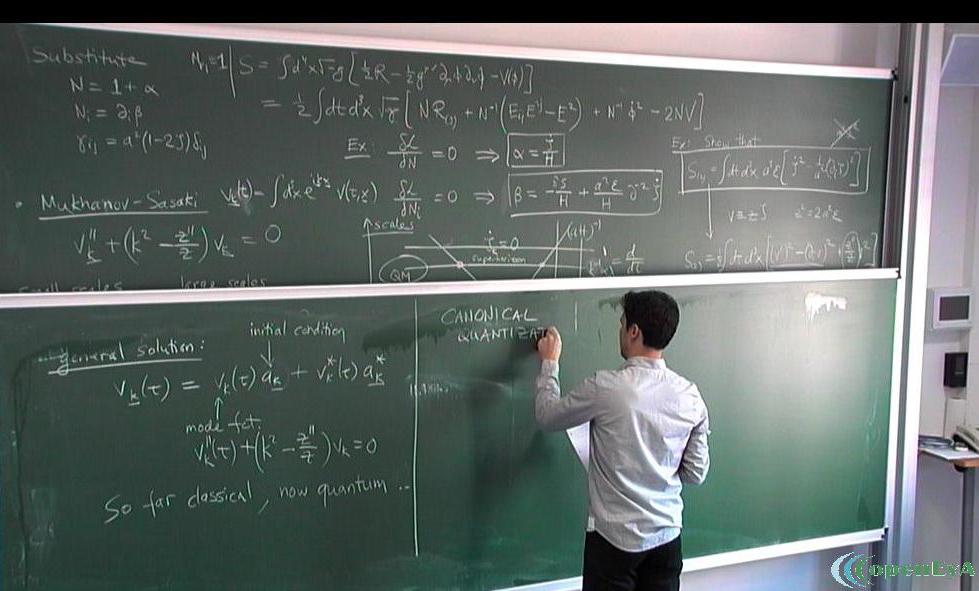 Substitute
N = 1 + α
N_i = ∂_i β
γ_ij = a²(1-2ζ)δ_ij
S = ∫d⁴x√-g [½R - ½g^μν ∂_μφ∂_νφ - V(φ)]
= ½∫dt d³x √γ [N R_(3) + N⁻¹(E_ij E^ij - E²) + N⁻¹ φ̇² - 2NV]
Ex: δL/δN = 0 ⇒ α = ζ̇/H
δL/δN_i = 0 ⇒
Ex: Show that
S_(2) = ∫dt d³x a³ε [ζ̇² - 1/a² (∂_iζ)²]
v ≡ zζ z² = 2a²ε
• Mukhanov-Sasaki
v_k(τ) = ∫d³x e^ikx v(τ,x)
v_k'' + (k² - z''/z) v_k = 0
scales
ζ̇ = 0
superhorizon
(aH)⁻¹
QM
small scales large scales
general solution:
initial condition
v_k(τ) = v_k(τ) a_k + v_k*(τ) a_k*
mode fct.
v_k''(τ) + (k² - z''/z) v_k = 0
So far classical, now quantum ..
CANONICAL
QUANTIZAT
openEyA